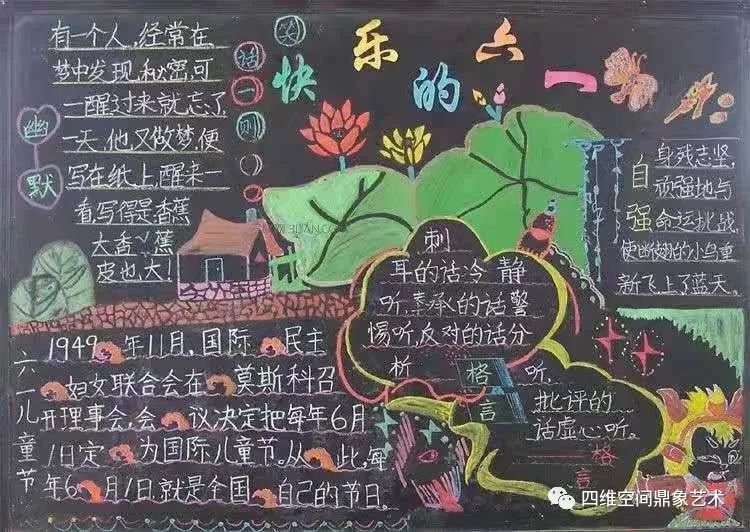 快乐的六一
笑话一则
幽默
有一个人，经常在
梦中发现秘密，可
一醒过来就忘了
一天，他又做梦，便
写在纸上，醒来一
看，写得是香蕉
大香蕉
皮也大！
自强
身残志坚，
顽强地与
命运挑战，
使断翅的小鸟重
新飞上了蓝天。
刺
耳的话冷静
听，奉承的话警
惕听，反对的话分
析听，
格言
批评的
话虚心听。
格言
六一儿童节
1949年11月，国际民主
妇女联合会在莫斯科召
开理事会，会议决定把每年6月
1日定为国际儿童节。从此，每
年6月1日，就是全国自己的节日。
四维空间鼎象艺术